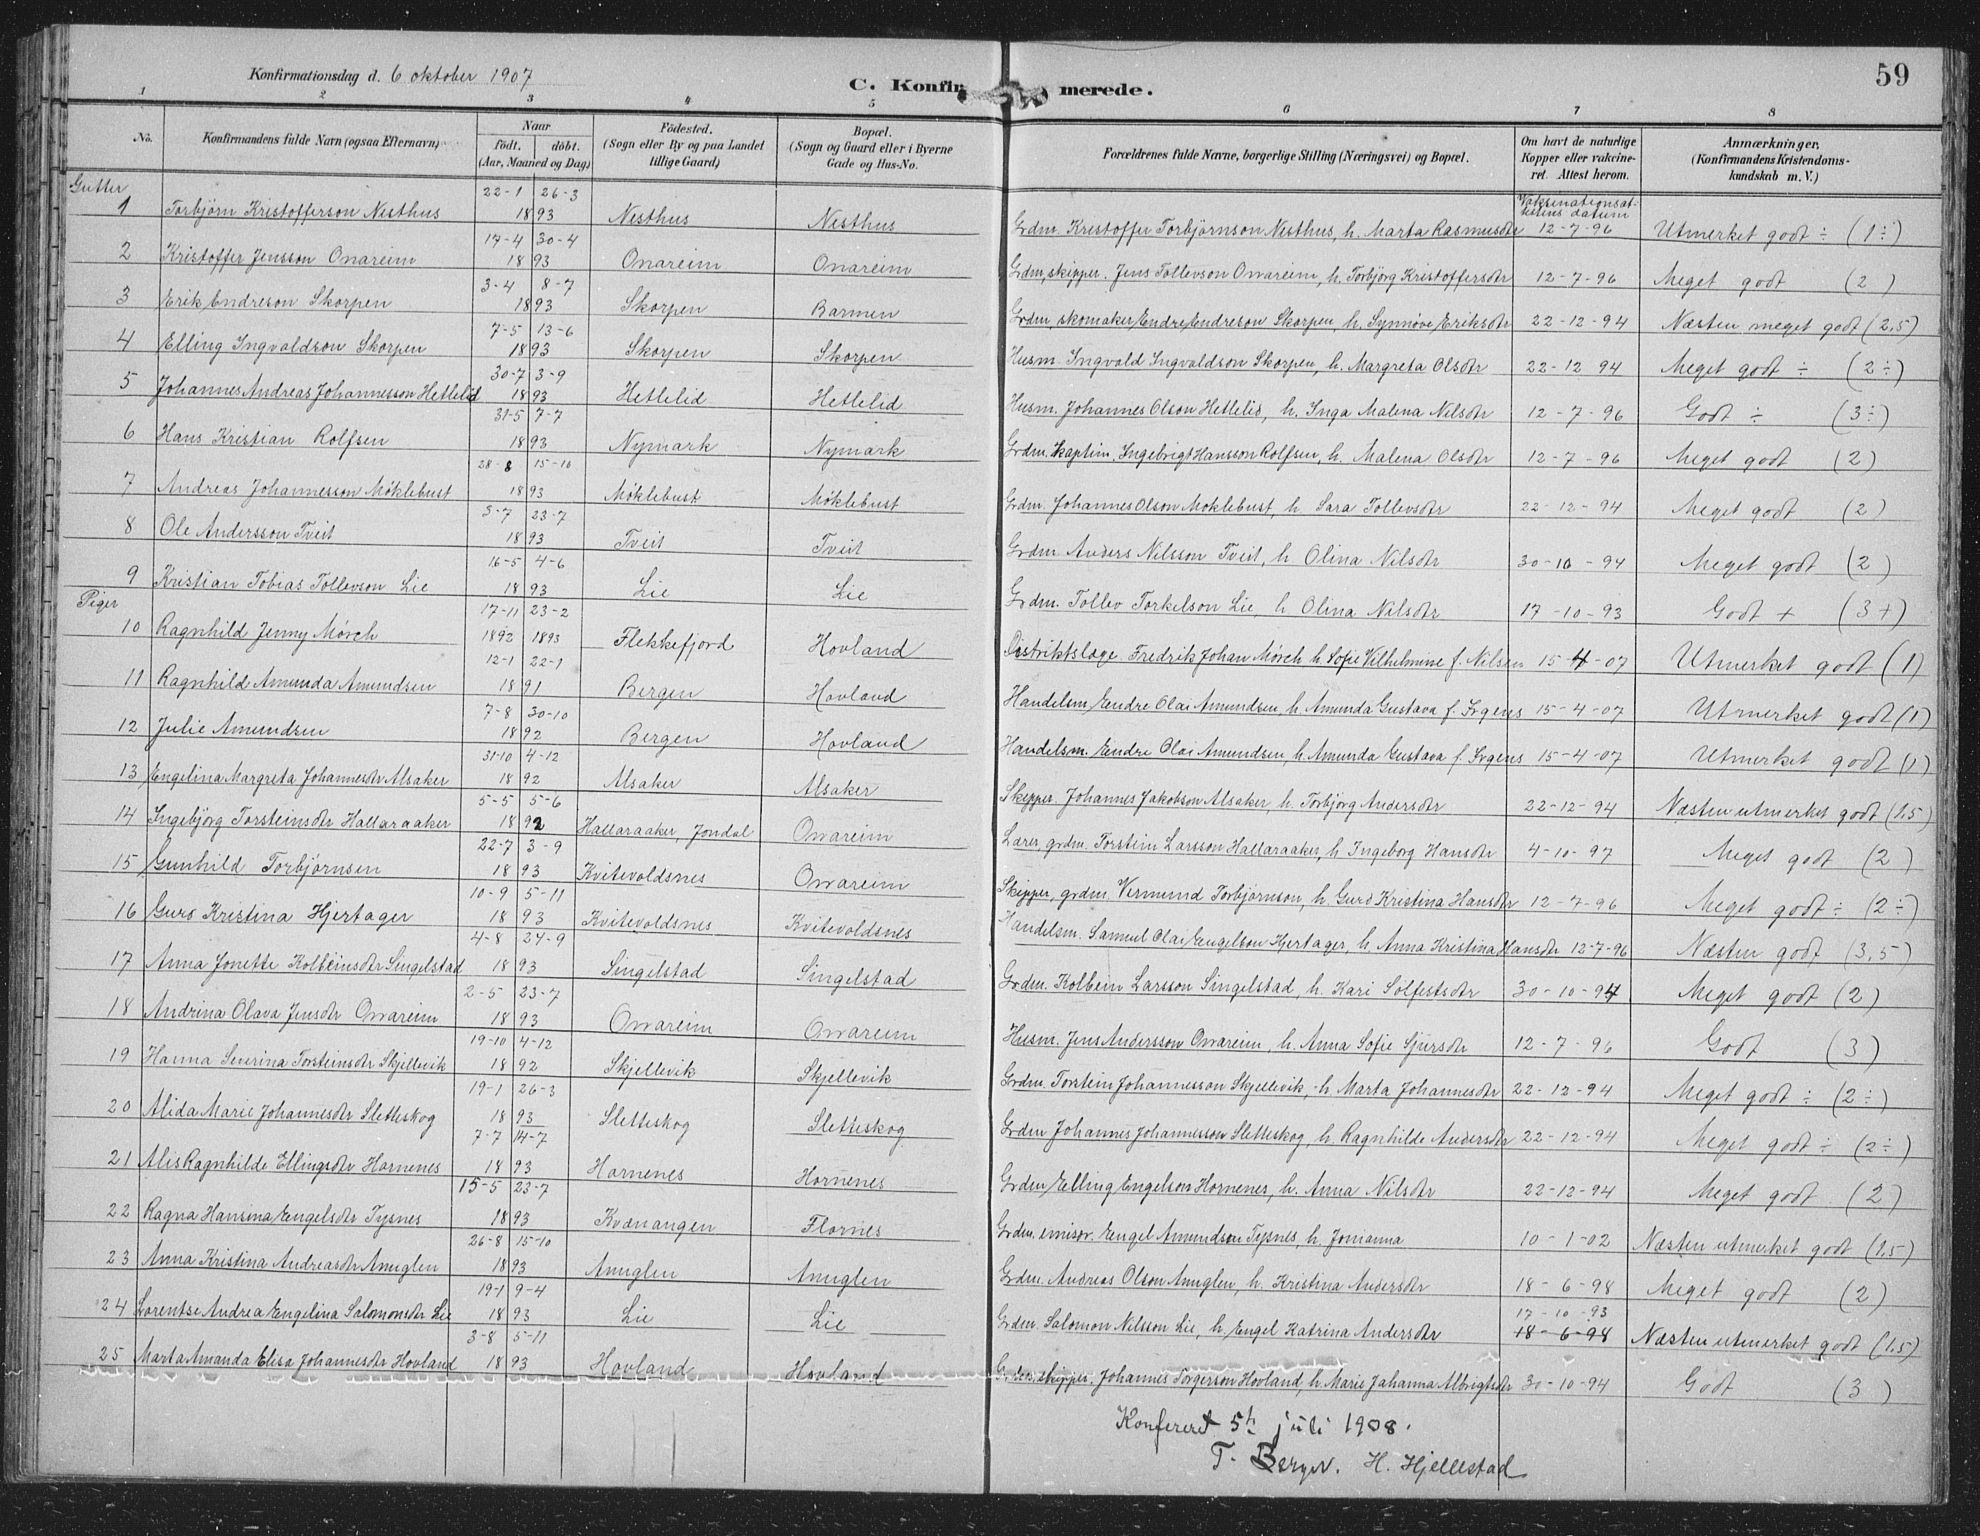 59
Konfirmationsdag d. 6 oktober 1907
C. Konfirmerede.
1 2 3 4 5 6 7 8
No. Konfirmandens fulde Navn (ogsaa Efternavn) Naar født. døbt. (Aar, Maaned og Dag) Fødested. (Sogn eller By og paa Landet tillige Gaard) Bopæl. (Sogn og Gaard eller i Byerne Gade og Hus-No. Forældrenes fulde Navne, borgerlige Stilling (Næringsvei) og Bopæl. Om havt de naturlige Kopper eller vakcineret. Attest herom. Anmærkninger, (Konfirmandens Kristendomskundskab m. V.)
Gutter
Vaksinationsattestens datum
1 Torbjörn Kristofferson Nesthus 22-1 26-3 1893 Nesthus Nesthus Grdm. Kristoffer Torbjörnson Nesthus, h. Marta Rasmusdtr 12-7-96 Utmerket godt ÷ (1÷)
2 Kristoffer Jensson Onareim 17-4 30-4 1893 Onareim Onareim Grdm, skipper. Jens Tollevson Onareim, h. Torbjörg Kristoffersdtr 12-7-96 Meget godt (2)
3 Erik Endreson Skorpen 3-4 8-7 1893 Skorpen Barmen Grdm skomaker Endre Endreson Skorpen, h. Synnöve Eriksdtr 22-12-94 Næsten meget godt (2,5)
4 Elling Ingvaldson Skorpen 7-5 13-6 1893 Skorpen Skorpen Husm. Ingvald Ingvaldson Skorpen, h. Margreta Olsdtr 22-12 94 Meget godt ÷ (2÷)
5 Johannes Andreas Johannesson Hetlelid 30-7 3-9 1893 Hetlelid Hetlelid Husm. Johannes Olson Hetlelid, h. Inga Malena Nilsdtr 12-7-96 Godt ÷ (3÷)
6 Hans Kristian Rolfsen 31-5 7-7 1893 Nymark Nymark Grdm. kaptein. Ingebrigt Hansson Rolfsen, h. Malena Olsdtr 12-7-96 Meget godt (2)
7 Andreas Johannesson Möklebust 28-8 15-10 1893 Möklebust Möklebust Grdm. Johannes Olson Möklebust, h. Sara Tollevsdtr 22-12-94 Meget godt (2)
8 Ole Andersson Tveit 3-7 23-7 1893 Tveit Tveit Grdm. Anders Nilsson Tveit, h Olina Nilsdtr 30-10-94 Meget godt (2)
9 Kristian Tobias Tollevson Lie 16-5 4-6 1893 Lie Lie Grdm. Tollev Torkelson Lie, h. Olina Nilsdtr 17-10-93 Godt + (3+)
Piger
10 Ragnhild Jenny Mörch 17-11 23-2 1892 1893 Flekkefjord Hovland Distriktslæge. Fredrik Johan Mörch h. Sofie Vilhelmine f. Nilsen 15-4-07 Utmerket godt (1)
11 Ragnhild Amunda Amundsen 12-1 22-1 1891 Bergen Hovland Handelsm. Endre Olai Amundsen, h. Amunda Gustava f. Irgens 15-4-07 Utmerket godt (1)
12 Julie Amundsen 7-8 30-10 1892 Bergen Hovland Handelsm. Endre Olai Amundsen, h. Amunda Gustava f. Irgens 15-4-07 Utmerket godt (1)
13 Engelina Margreta Johannesdtr Alsaker 31-10 4-12 1892 Alsaker Alsaker Skipper Johannes Jakobson Alsaker, h. Torbjörg Andersdtr 22-12-94 Næsten utmerket godt (1,5)
14 Ingebjörg Torsteinsdtr Hallaraaker 5-5 5-6 1892 Hallaraaker, Jondal Onareim Lærer, grdm. Torstein Larsson Hallaraaker, h Ingeborg Hansdtr 4-10-97 Meget godt (2)
15 Gunhild Torbjörnsen 22-7 3-9 1893 Kvitevoldsnes Onareim Skipper, grdm. Vermund Torbjörnson, h. Gurö Kristina Hansdtr 12-7-96 Meget godt ÷ (2÷)
16 Gurö Kristina Hjertager 10-9 5-11 1893 Kvitevoldsnes Kvitevoldsnes Handelsm. Samuel Olai Engelson Hjertager, h. Anna Kristina Hansdtr 12-7-96 Næsten godt (3,5)
17 Anna Jonette Kolbeinsdtr Singelstad 4-8 24-9 1893 Singelstad Singelstad Grdm. Kolbein Larsson Singelstad, h. Kari Solfestsdtr 30-10-94 Meget godt (2)
18 Andrina Olava Jensdtr Onareim 2-5 23-7 1893 Onareim Onareim Husm. Jens Andersson Onareim, h. Anna Sofie Sjursdtr 12-7-96 Godt (3)
19 Hanna Severina Torsteinsdtr Skjellevik 19-10 4-12 1892 Skjellevik Skjellevik Grdm. Torstein Johannesson Skjellevik, h. Marta Johannesdtr 22-12-94 Meget godt ÷ (2÷)
20 Alida Marie Johannesdtr Sletteskog 19-1 26-3 1893 Sletteskog Sletteskog Grdm Johannes Johannesson Sletteskog, h. Ragnhilde Andersdtr 22-12-94 Meget godt ÷ (2÷)
21 Alis Ragnhilde Ellingsdtr Hornenes 7-7 14-7 1893 Hornenes Hornenes Grdm Elling Engelson Hornenes, h. Anna Nilsdtr 22-12-94 Meget godt (2)
22 Ragna Hansina Engelsdtr Tysnes 15-5 23-7 1893 Kvænangen Flornes Grdm. emisær. Engel Amundson Tysnes, h. Jonianna 10-1-02 Næsten utmerket godt (1,5)
23 Anna Kristina Andreasdtr Anuglen 26-8 15-10 1893 Anuglen Anuglen Grdm. Andreas Olson Anuglen, h. Kristina Andersdtr 18-6-98 Meget godt (2)
24 Lorentse Andrea Engelina Salomonsdtr Lie 19-1 9-4 1893 Lie Lie Grdm. Salomon Nilsson Lie, h. Engel Katrina Andersdtr 17-10-93 18-6-98 Næsten utmerket godt (1,5)
25 Marta Amanda Elisa Johannesdtr Hovland 3-8 5-11 1893 Hovland Hovland skipper. Johannes Torgerson Hovland, h. Marie Johanna Albrigtsdtr 30-10-94 Godt (3)
Konfereret 5te juli 1908.
T. Berge. H. Hjellestad